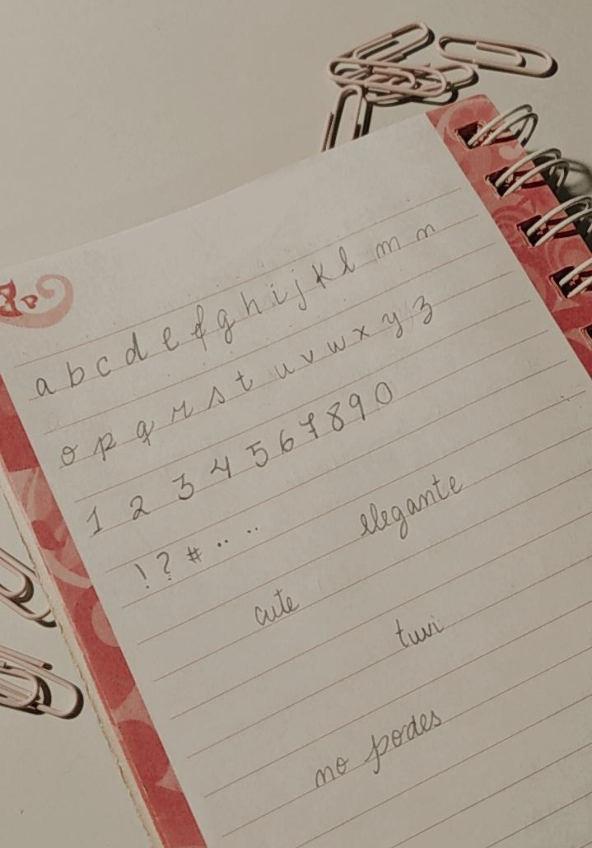 a b c d e f g h i j k l m n
o p q r s t u v w x y z
1 2 3 4 5 6 7 8 9 0
! ? # .. ..
elegante
cute
tuvi
no podes